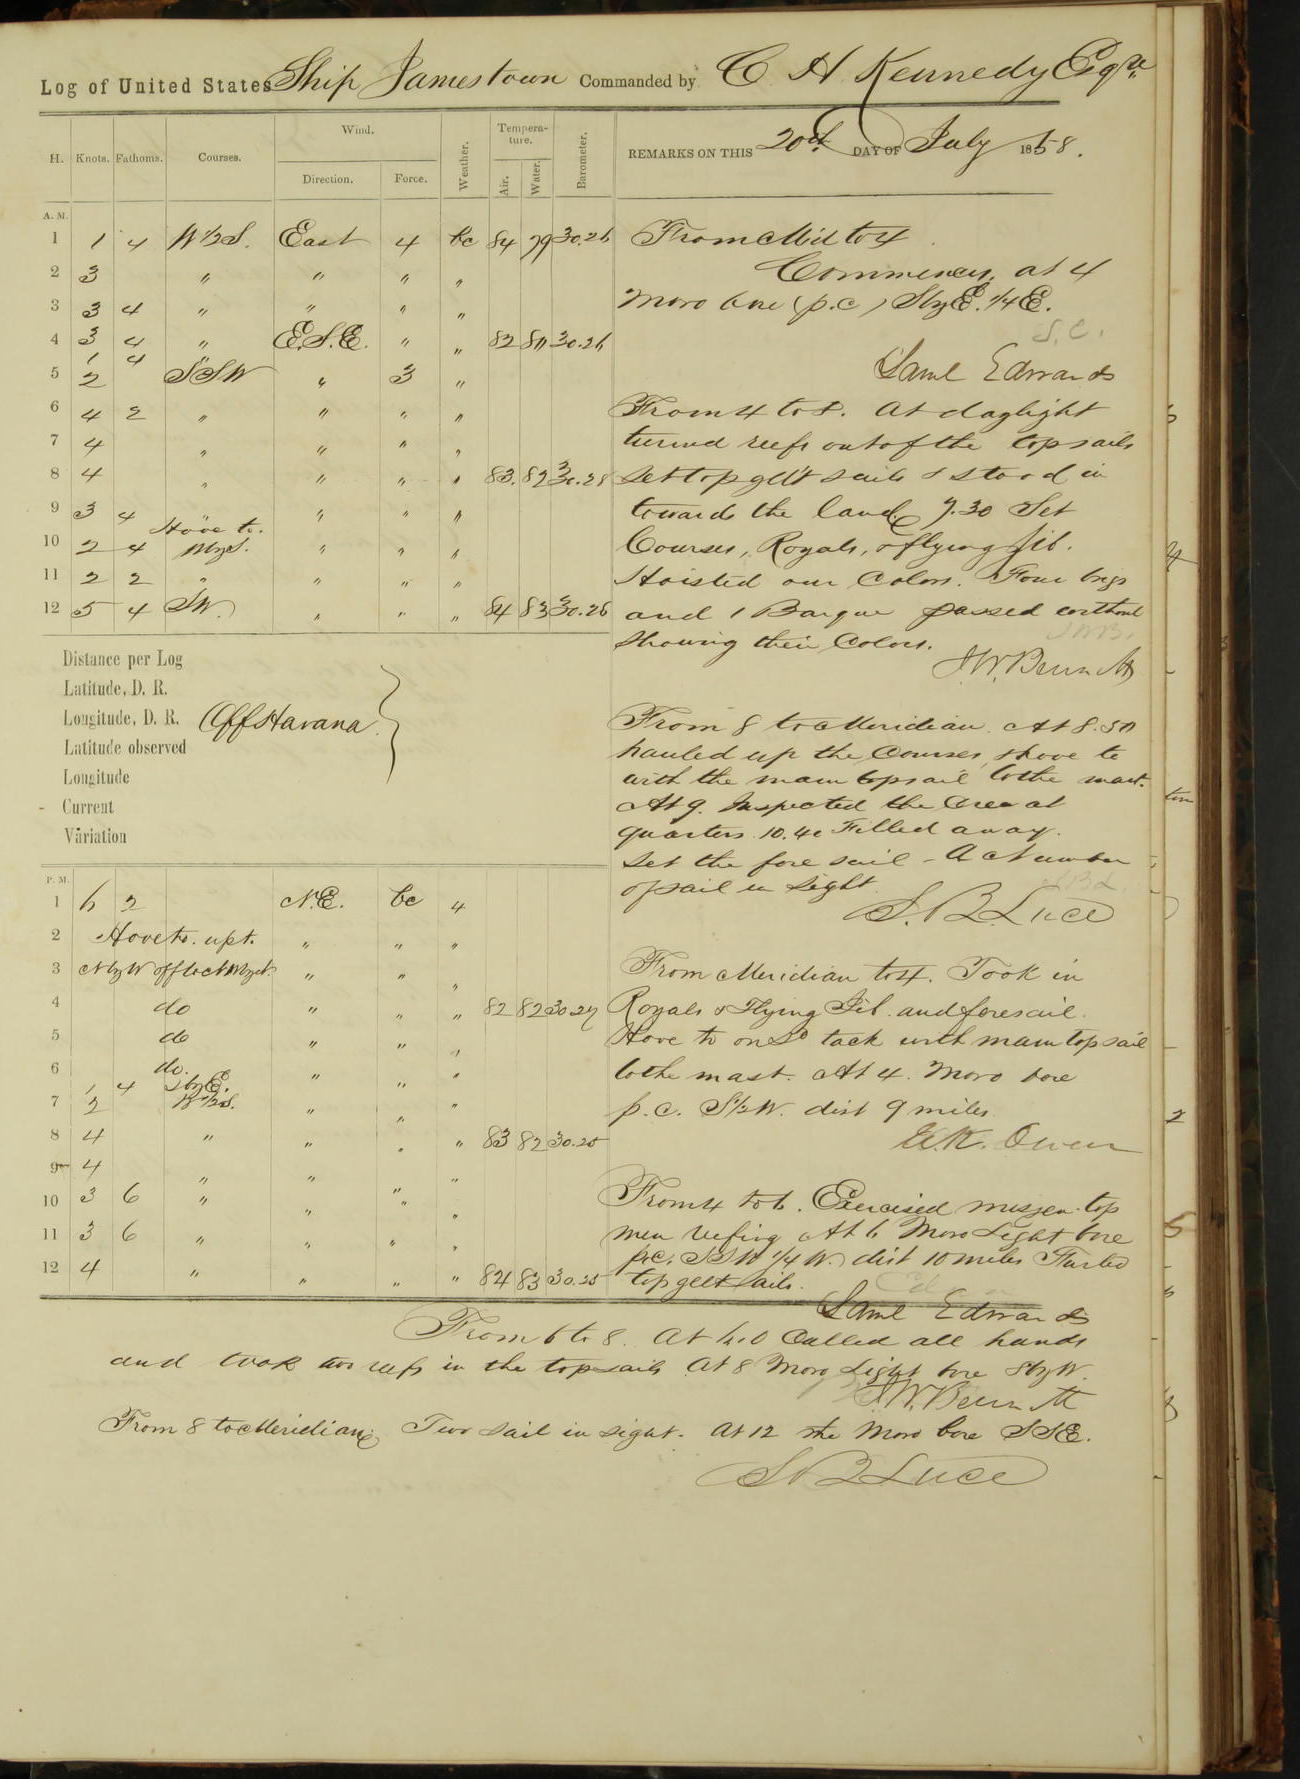 Log of United States Ship Jamestown Commanded by C H Kennedy Esqre
H. Knots. Fathoms. Courses. Wind. Direction. Force. Weather. Tempera-ture. Air. Water. Barometer. REMARKS ON THIS 20th DAY OF July 1858.
A. M.
1 1 4 W ½ S. East 4 bc 84 79 30.26
2 3 " " " "
3 3 4 " " " "
4 3 4 " E.S.E. " " 82 80 30.26
1 4
5 2 SSW " 3 "
6 4 2 " " " "
7 4 " " " "
8 4 " " " " 83. 82 30.28
9 3 4 " " " "
Hove to.
10 2 4 " " "
11 2 2 " " " "
12 5 4 SW " " " 84 83 30.28
From Mid to 4
Commences, at 4
Moro bore (p.c) SbyE. ¼ E.
S.E.
Saml Edwards
From 4 to 8. At daylight
turned reefs out of the topsails
set top gllt sails & stood in
towards the land 7.30 Set
Courses, Royals, & flying Jib.
Hoisted our Colors. Four brigs
and 1 Barque passed without
showing their Colors.
Distance per Log
Latitude, D. R.
Longitude, D. R. Off Havana
Latitude observed
Longitude
Current
Variation
From 8 to Meridian. At 8.50
hauled up the Courses, & hove to
with the main topsail to the mast.
At 9. Inspected the Crew at
quarters. 10.40 Filled away.
Set the fore sail - A Number
of sail in sight.
S. B. Luce
P. M.
1 6 2 N.E. bc 4
2 Hove to. up t. " " "
3 NbyW off to NWbyN. " " "
4 do " " " 82 82 30.27
5 do " " "
6 do. " " "
1 4 SbyE.
7 2 W½S. " " "
8 4 " " " " 83 82 30.25
9 4 " " " "
10 3 6 " " " "
11 3 6 " " " "
12 4 " " " " 84 83 30.25
From Meridian to 4. Took in
Royals & Flying Jib. and foresail.
Hove to on Sd tack with main topsail
to the mast. At 4. Moro bore
p.c. S½W. dist 9 miles.
Owen
From 4 to 6. Exercised mizzen top
men reefing At 6 Moro Light bore
p.c. SSW ¼ W. dist 10 miles Furled
top gllt sails.
Saml Edwards
From 6 to 8. At Called all hands
and took two reefs in the topsails. At 8 Moro Light bore SbyW.
From 8 to Meridian, Two sail in sight. At 12 the Moro bore SSE.
S B Luce